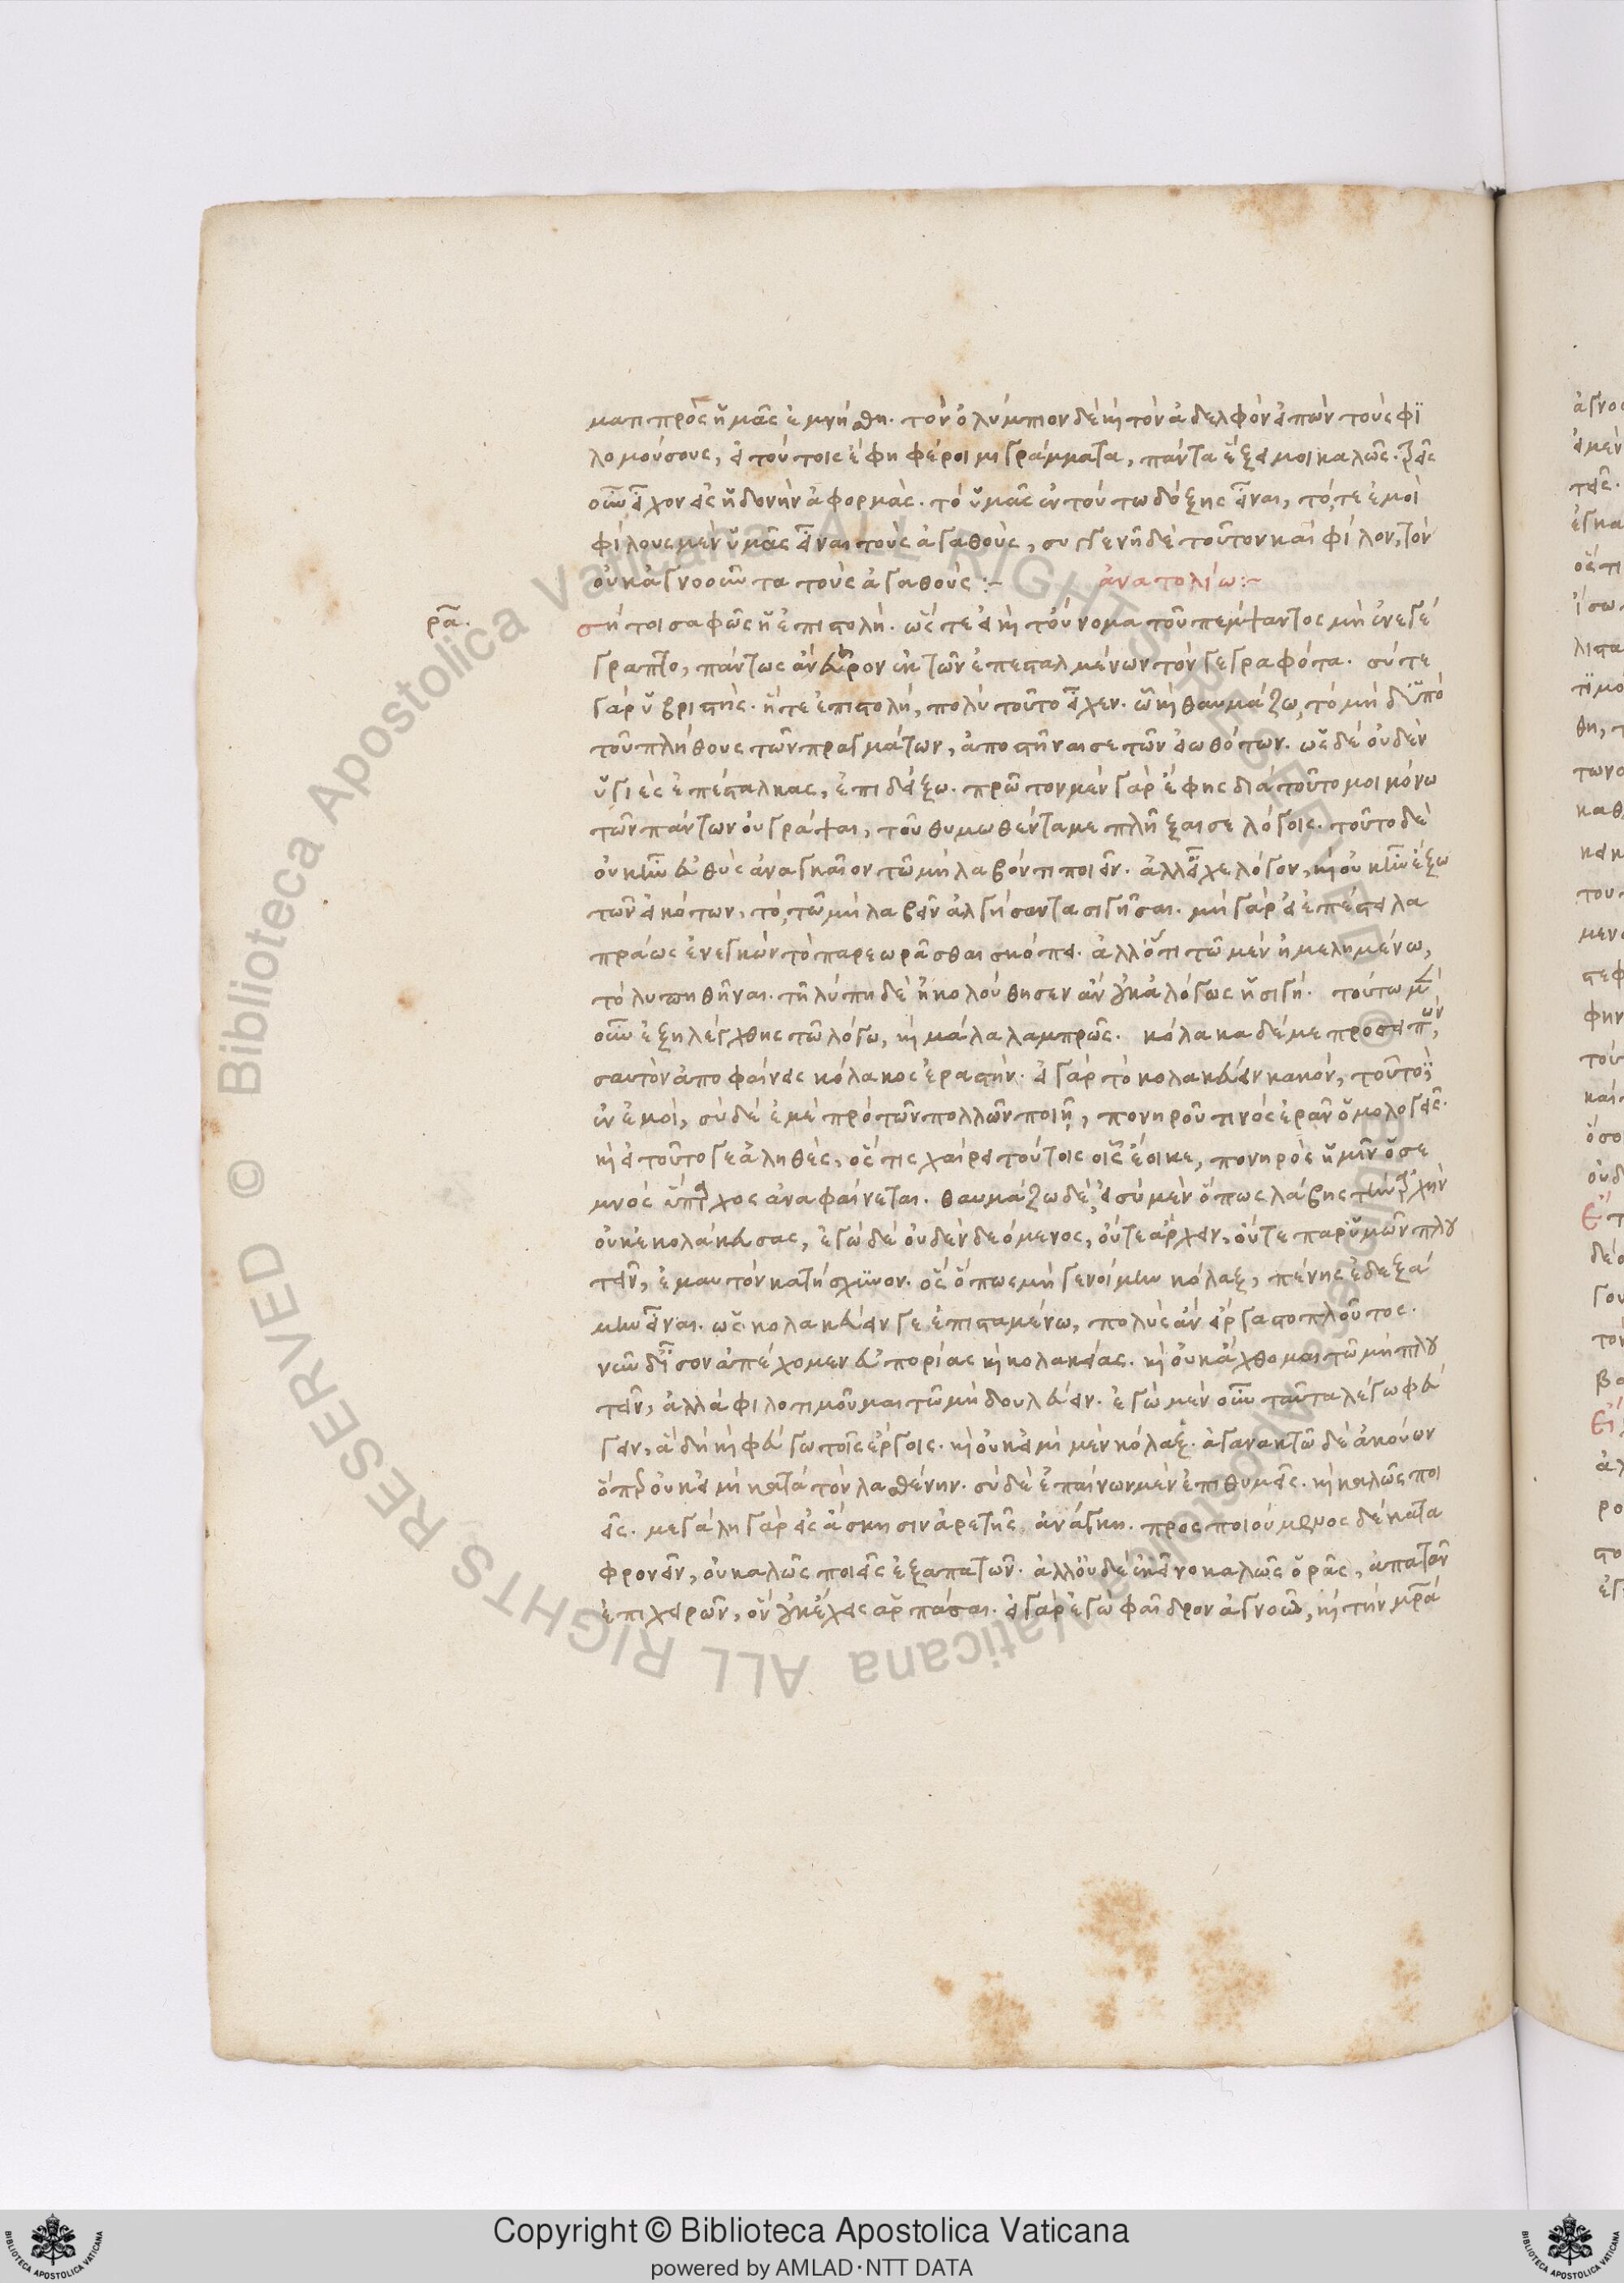 ματι πρὸς ἡμᾶς ἐμνήσθη. τὸν ὀλύμπιον δὲ καὶ τὸν ἀδελφὸν εἰπὼν τοὺς φι
λομούσους, εἰ τούτοις ἔφη φέροιμι γράμματα, πάντα ἕξει μοι καλῶς. τρεῖς
οὖν εἶχον εἰς ἡδονὴν ἀφορμάς. τὸ ὑμᾶς ἐν τούτω δόξης εἶναι, τό, τε ἐμοὶ
φίλους μὲν ὑμᾶς εἶναι τοὺς ἀγαθούς, συγγενῆ δὲ τοῦτον καὶ φίλον, τὸν
οὐκ ἀγνοοῦντα τοὺς ἀγαθούς :- ἀνατολίω :-
ρα.
σή τοι σαφῶς ἡ ἐπιστολή. ὥστε εἰ καὶ τοὔνομα τοῦ πέμψαντος μὴ ἐνεγέ
γραπτο, πάντως ἂν εὗρον ἐκ τῶν ἐπεσταλμένων τὸν γεγραφότα. σύ τε
γὰρ ὑβριστής. ἥ τε ἐπιστολή, πολὺ τοῦτο εἶχεν. ὧ καὶ θαυμάζω, τὸ μηδ' ὑπὸ
τοῦ πλήθους τῶν πραγμάτων, ἀποστῆναί σε τῶν εἰωθότων. ὡς δὲ οὐδὲν
ὑγιὲς ἐπέσταλκας, ἐπιδείξω. πρῶτον μὲν γὰρ ἔφης διὰ τοῦτό μοι μόνω
τῶν πάντων οὐ γράψαι, τοῦ θυμωθέντα με πλῆξαί σε λόγοις. τοῦτο δὲ
οὐκ ἦν εὐθὺς ἀναγκαῖον τῶ μὴ λαβόντι ποιεῖν. ἀλλ' εἶχε λόγον, καὶ οὐκ ἦν ἔξω
τῶν εἰκότων, τό, τῶ μὴ λαβεῖν ἀλγήσαντα σιγῆσαι. μὴ γὰρ εἰ ἐπέστειλα
πράως ἐνεγκὼν τὸ παρεωρᾶσθαι σκόπει. ἀλλ' ὅτι τῶ μὲν ἠμελημένω,
τὸ λυπηθῆναι. τῆ λύπη δὲ ἠκολούθησεν ἂν οὐκ ἀλόγως ἡ σιγή. τούτω μὲν
οὖν ἐξηλέγχθης τῶ λόγω, καὶ μάλα λαμπρῶς. κόλακα δέ με προσειπών,
σαυτὸν ἀποφαίνεις κόλακος ἐραστήν. εἰ γὰρ τὸ κολακεύειν κακόν, τοῦτο δ'
ἐν ἐμοί, σὺ δὲ ἐμὲ πρὸ τῶν πολλῶν ποιῆ, πονηροῦ τινὸς ἐρᾶν ὁμολογεῖς.
καὶ εἰ τοῦτό γε ἀληθές, ὅς τις χαίρει τούτοις οἷς ἔοικε, πονηρὸς ἡμῖν ὁ σε
μνὸς ὕπαρχος ἀναφαίνεται. θαυμάζω δέ, εἰ σὺ μὲν ὅπως λάβης τὴν ἀρχὴν
οὐκ ἐκολάκευσας, ἐγὼ δὲ οὐδὲν δεόμενος, οὔτε ἄρχειν, οὔτε παρ' ὑμῶν πλου
τεῖν, ἐμαυτὸν κατήσχυνον. ὃς ὅπως μὴ γενοίμην κόλαξ, πένης ἐδεξά
μην εἶναι. ὡς κολακεύειν γε ἐπισταμένω, πολὺς ἂν εἴργαστο πλοῦτος.
νῦν δ' ἴσον ἀπέχομεν εὐπορίας καὶ κολακείας. καὶ οὐκ ἄχθομαι τῶ μὴ πλου
τεῖν, ἀλλὰ φιλοτιμοῦμαι τῶ μὴ δουλεύειν. ἐγὼ μὲν οὖν ταῦτα λέγω φεύ
γειν, ἃ δὴ καὶ φεύγω τοῖς ἔργοις. καὶ οὐκ εἰμὶ μὲν κόλαξ. ἀγανακτῶ δὲ ἀκούων
ὅπερ οὐκ εἰμὶ κατὰ τὸν λασθένην. σὺ δὲ ἐπαίνων μὲν ἐπιθυμεῖς. καὶ καλῶς ποι
εῖς. μεγάλη γὰρ εἰς ἄσκησιν ἀρετῆς, ἀνάγκη. προσποιούμενος δὲ κατα
φρονεῖν, οὐ καλῶς ποιεῖς ἐξαπατῶν. ἀλλ' οὐδὲ ἐκεῖνο καλῶς ὁρᾶς, ἀπατᾶν
ἐπιχειρῶν, ὃν οὐκ ἔχεις ἁρπάσαι. εἰ γὰρ ἐγὼ φαῖδρον ἀγνοῶ, καὶ τὴν μρά